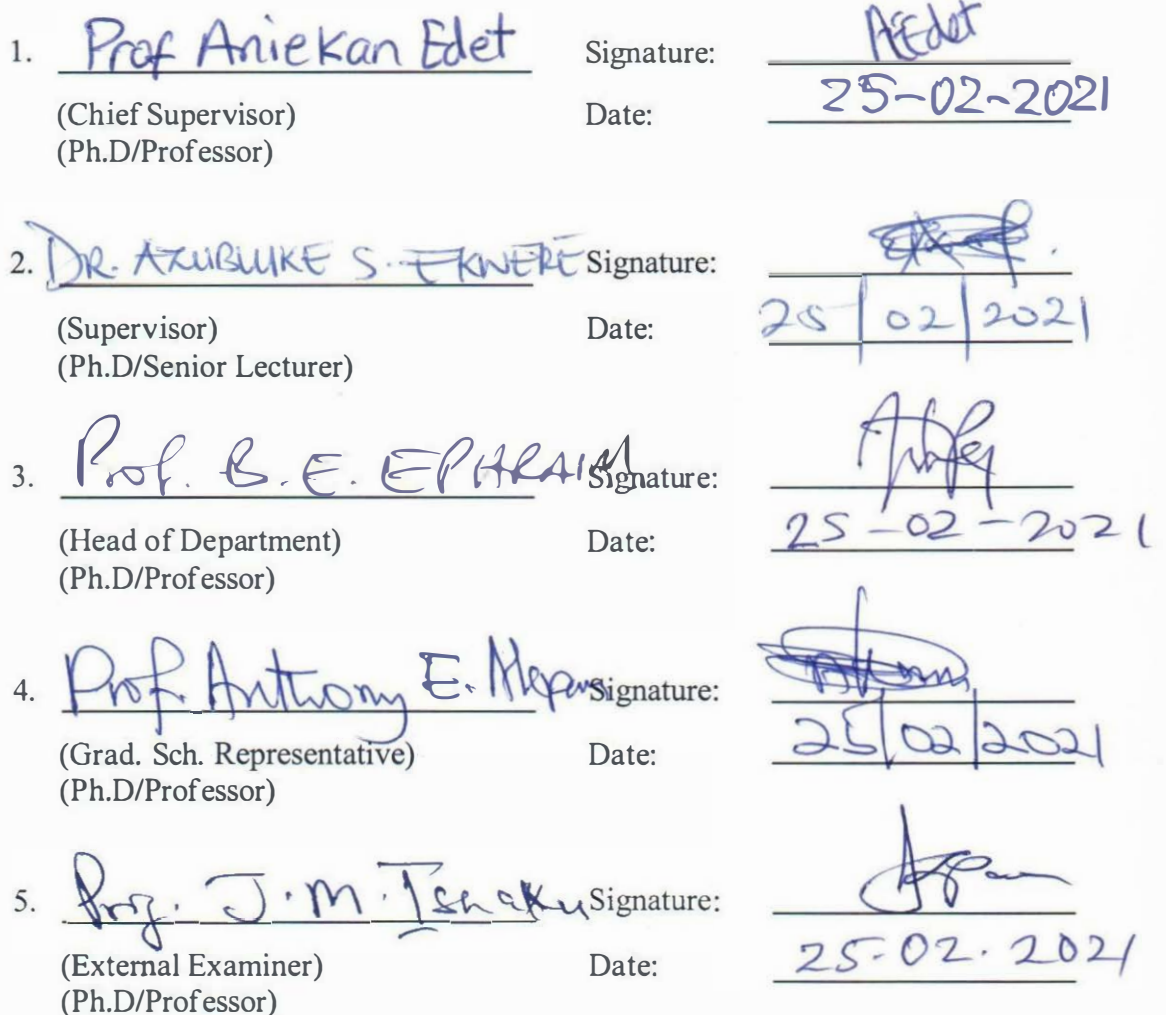 1. Prof Aniekan Edet Signature: AEdet
(Chief Supervisor) Date: 25-02-2021
(Ph.D/Professor)
2. DR. AZUBUIKE S. EKWERE Signature:
(Supervisor) Date: 25/02/2021
(Ph.D/Senior Lecturer)
3. Prof. B. E. EPHRAIM Signature:
(Head of Department) Date: 25-02-2021
(Ph.D/Professor)
4. Prof. Anthony E. Signature:
(Grad. Sch. Representative) Date: 25/02/2021
(Ph.D/Professor)
5. Prof. J. M. Ishaku Signature:
(External Examiner) Date: 25-02.2021
(Ph.D/Professor)